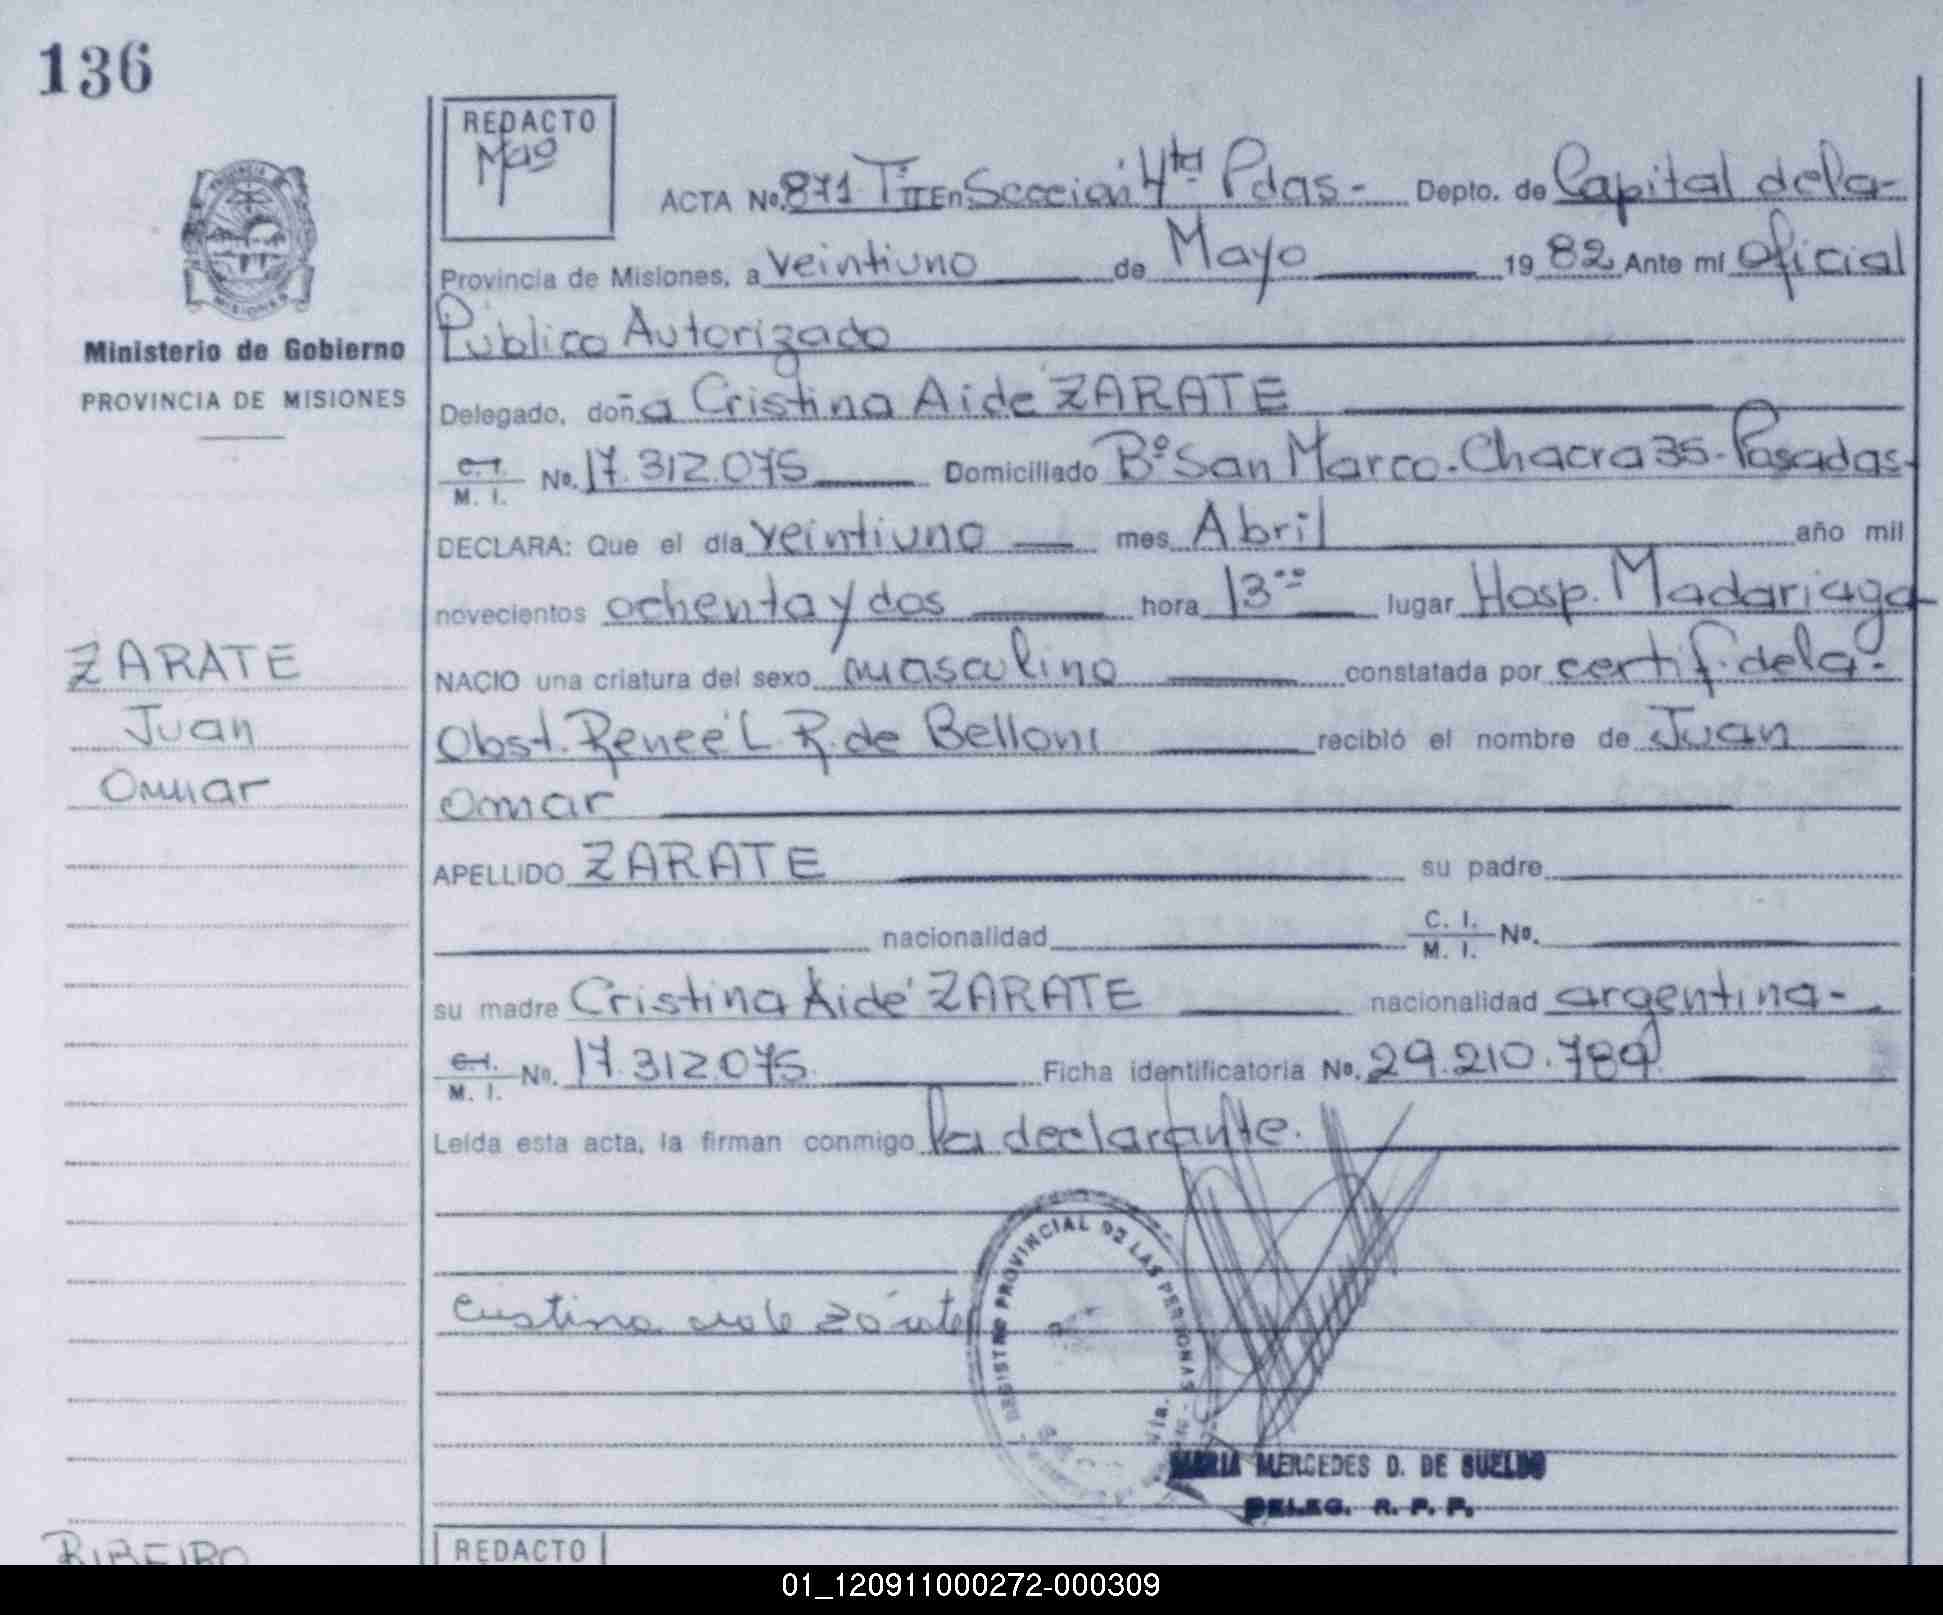 136
REDACTO
ACTA No. 871 T: II En Seccion 4ta Pdas- Depto. de Capital dela-
Provincia de Misiones, a veintiuno de Mayo 19 82 Ante mí Oficial
Público Autorizado
Delegado, doña Cristina Aidé ZARATE
C. I. / M. I. No. 17.312.075 Domiciliado Bº San Marco. Chacra 35. Posadas.
DECLARA: Que el día veintiuno mes Abril año mil
novecientos ochenta y dos hora 13ºº lugar Hosp. Madariaga
NACIO una criatura del sexo masculino constatada por certif. dela
Obst. Reneé L. R. de Belloni recibió el nombre de Juan
Omar
APELLIDO ZARATE su padre
nacionalidad C. I. / M. I. No.
su madre Cristina Aidé ZARATE nacionalidad argentina-
C. I. / M. I. No. 17.312.075 Ficha identificatoria No. 29.210.789
Leída esta acta, la firman conmigo la declarante.
Cristina aide Zárate
REGISTRO PROVINCIAL DE LAS PERSONAS
MARIA MERCEDES D. DE SUELDO
DELEG. R. P. P.
PROVINCIA
MISIONES
Ministerio de Gobierno
PROVINCIA DE MISIONES
ZARATE
Juan
Omar
RIBEIRO
REDACTO
01_120911000272-000309